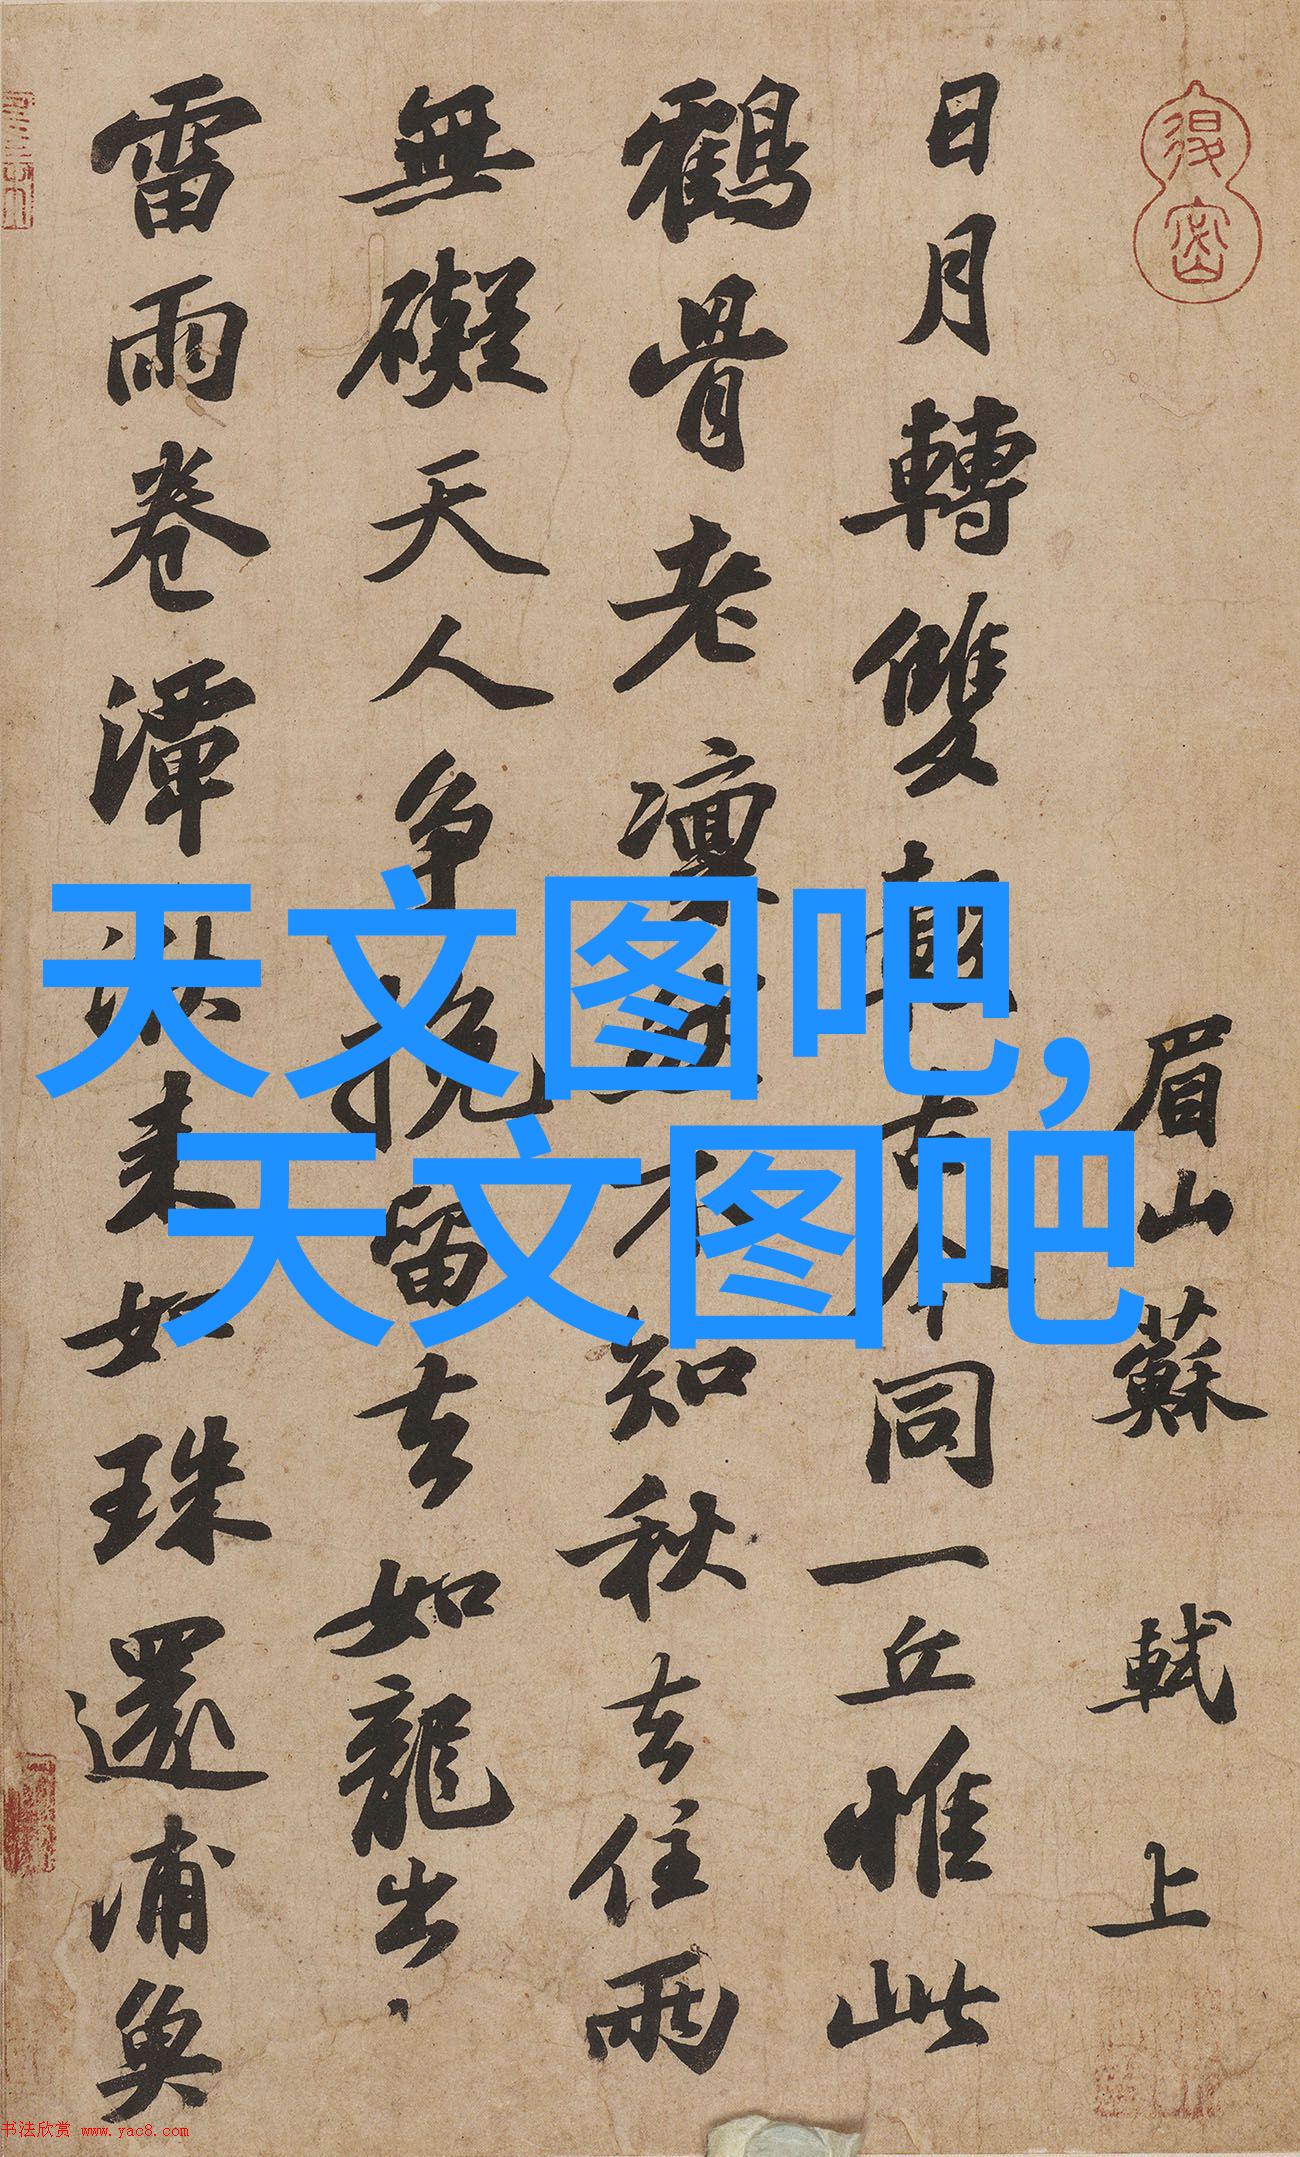 眉山蘇軾上
日月轉雙轂古今同一丘惟此
鶴骨老凜然不知秋去住兩
無礙天人爭挽留去如龍出
雷雨卷潭湫来如珠還浦魚
天文图吧,
天文图吧
书法欣赏 www.yac8.com